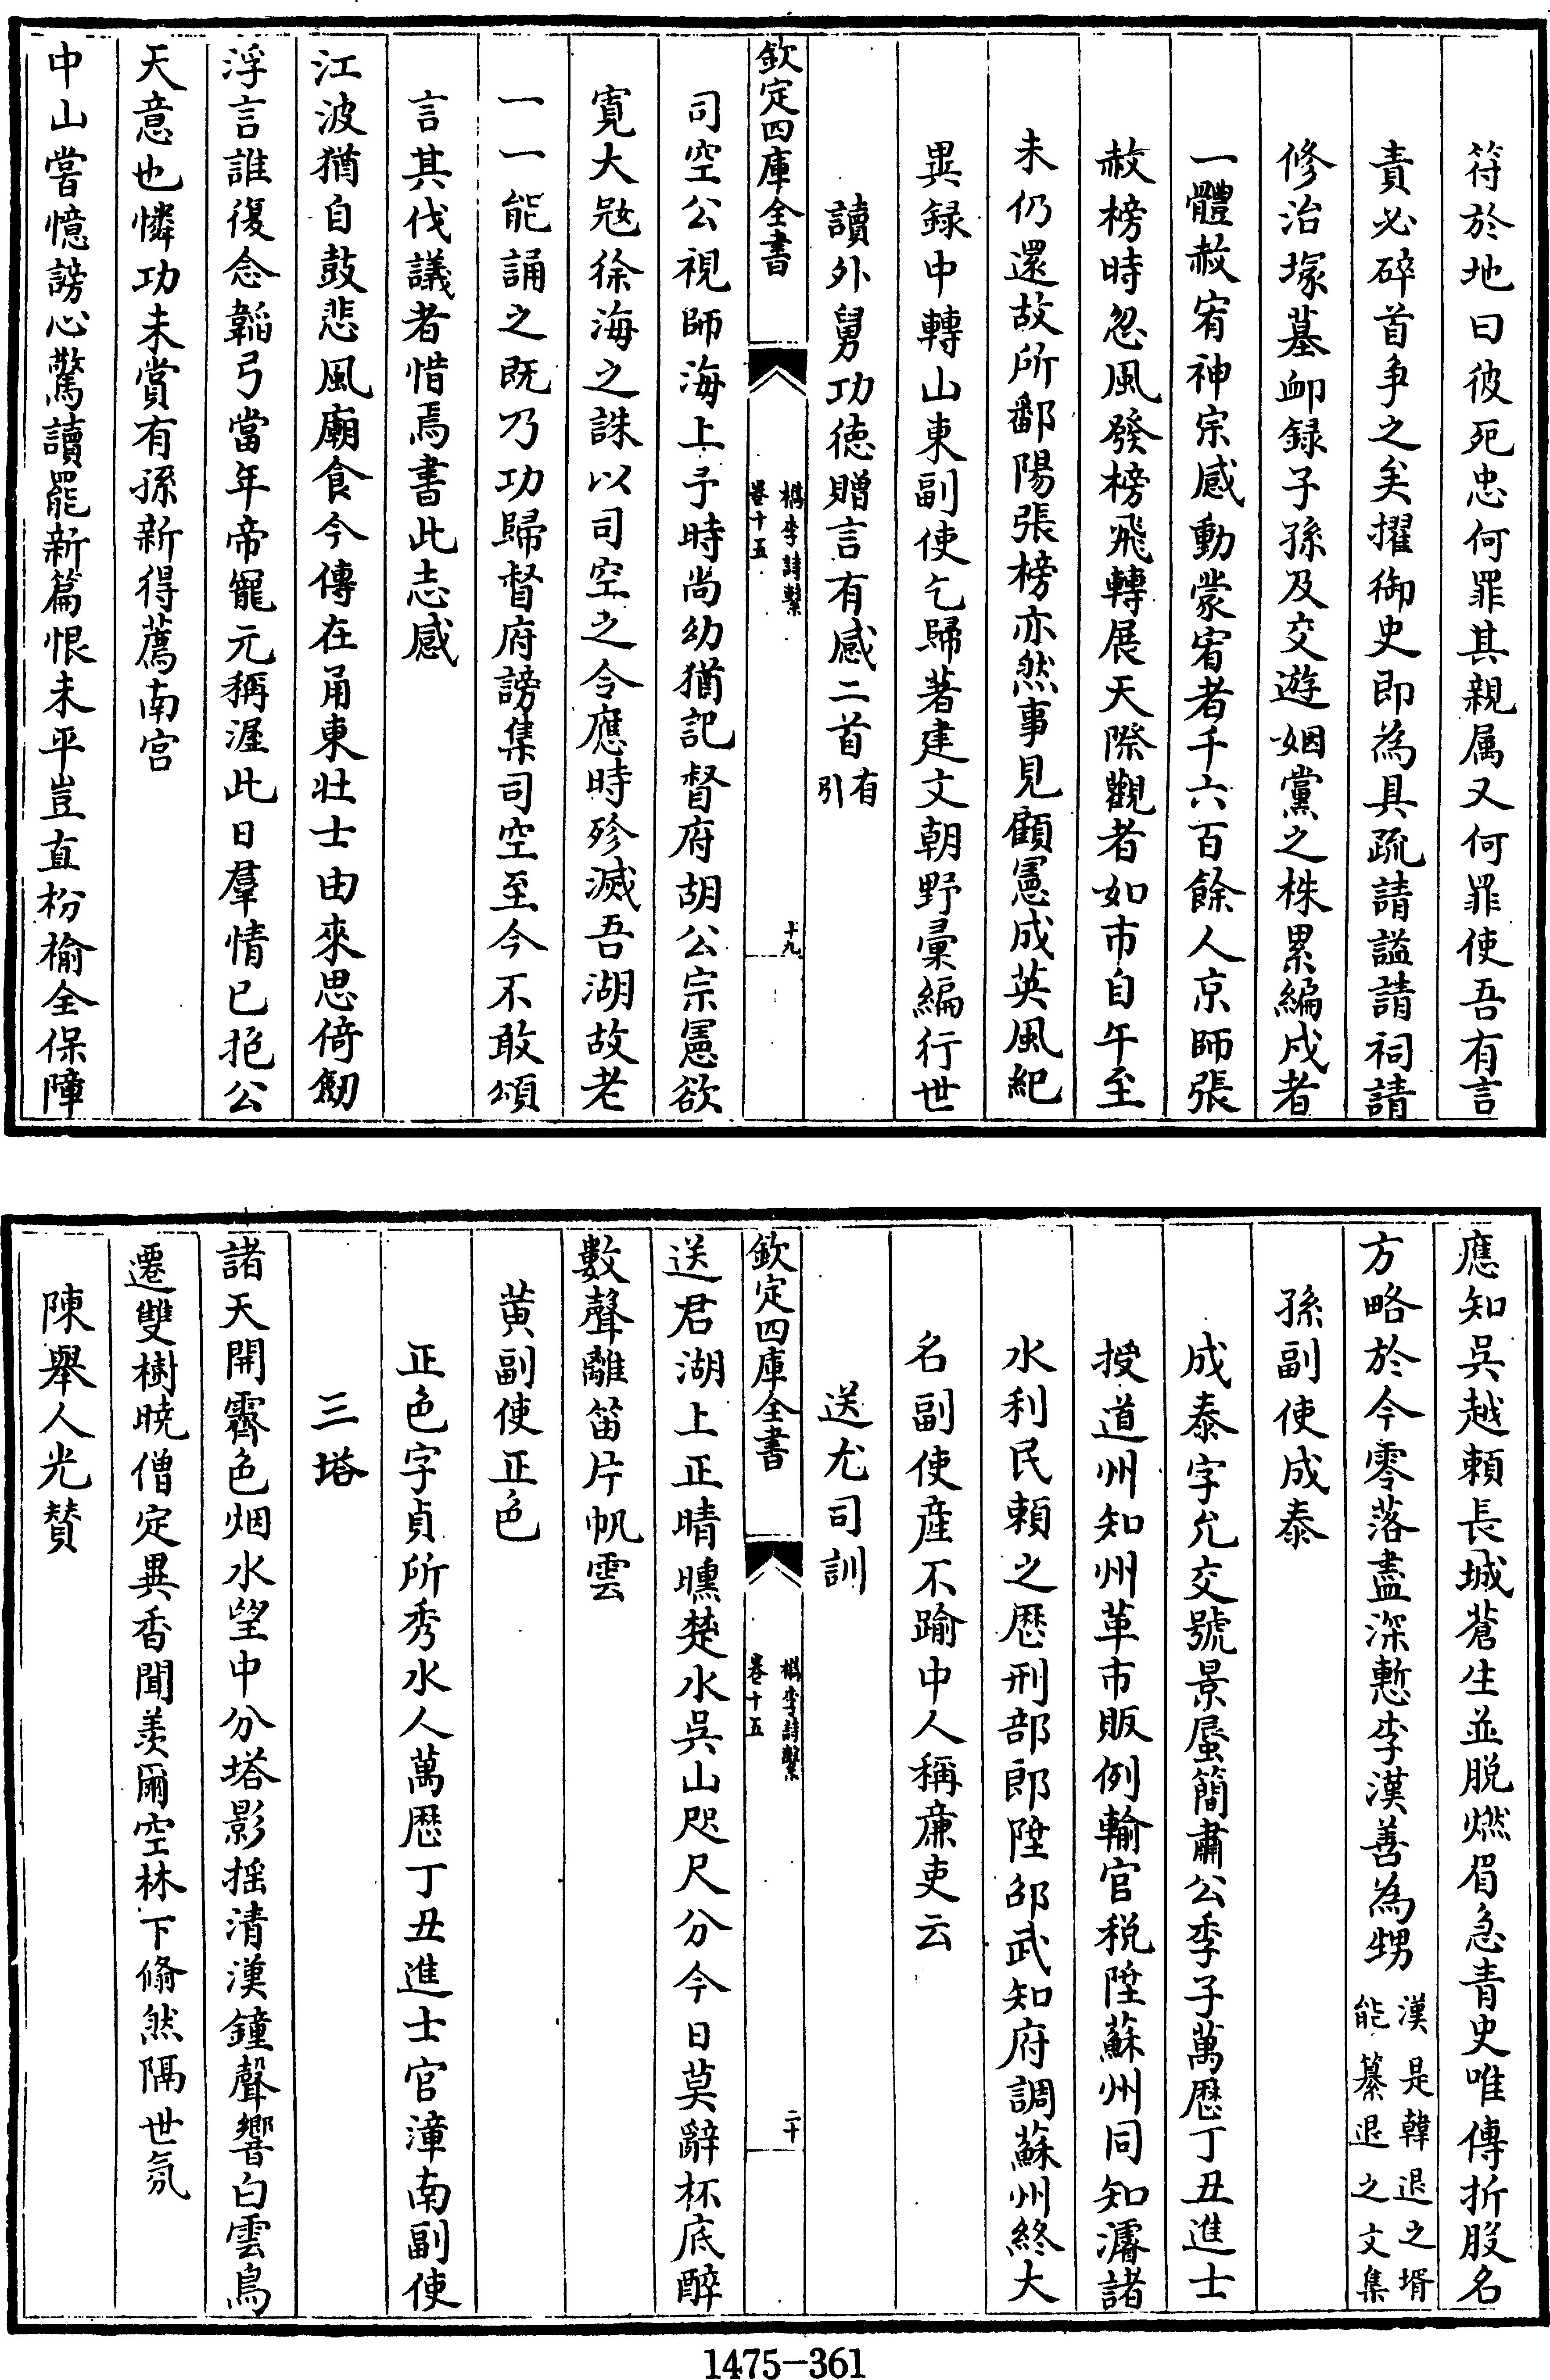 符於地曰彼死忠何罪其親属又何罪使吾有言
責必碎首争之矣擢御史即為具疏請謚請祠請
修治塚墓䘏録子孫及交遊姻黨之株累編戍者
一體赦宥神宗感動蒙宥者千六百餘人京師張
赦榜時忽風發榜飛轉展天際觀者如市自午至
未仍還故所鄱陽張榜亦然事見顧憲成英風紀
異録中轉山東副使乞歸著建文朝野彙編行世
讀外舅功徳贈言有感二首有引
欽定四庫全書
檇李詩繫
卷十五
十九
司空公視師海上予時尚幼猶記督府胡公宗憲欲
寛大冦徐海之誅以司空之令應時殄滅吾湖故老
一一能誦之既乃功歸督府謗集司空至今不敢頌
言其伐議者惜焉書此志感
江波猶自鼓悲風廟食今傳在甬東壯士由來思倚劒
浮言誰復念韜弓當年帝寵元稱渥此日羣情已抱公
天意也憐功未賞有孫新得薦南宫
中山嘗憶謗心驚讀罷新篇恨未平豈直枌榆全保障
應知吳越頼長城蒼生並脱燃眉急青史唯傳折股名
方略於今零落盡深慙李漢善為甥漢是韓退之壻能纂退之文集
孫副使成泰
成泰字允交號景蜃簡肅公季子萬厯丁丑進士
授道州知州革市販例輸官税陞蘇州同知濬諸
水利民頼之厯刑部郎陞邵武知府調蘇州終大
名副使産不踰中人稱亷吏云
送尤司訓
欽定四庫全書
檇李詩繫
卷十五
二十
送君湖上正晴曛楚水吳山咫尺分今日莫辭杯底醉
數聲離笛片帆雲
黄副使正色
正色字貞所秀水人萬厯丁丑進士官漳南副使
三塔
諸天開霽色烟水望中分塔影揺清漢鐘聲響白雲鳥
遷雙樹曉僧定異香聞羨爾空林下翛然隔世氛
陳舉人光贊
1475-361